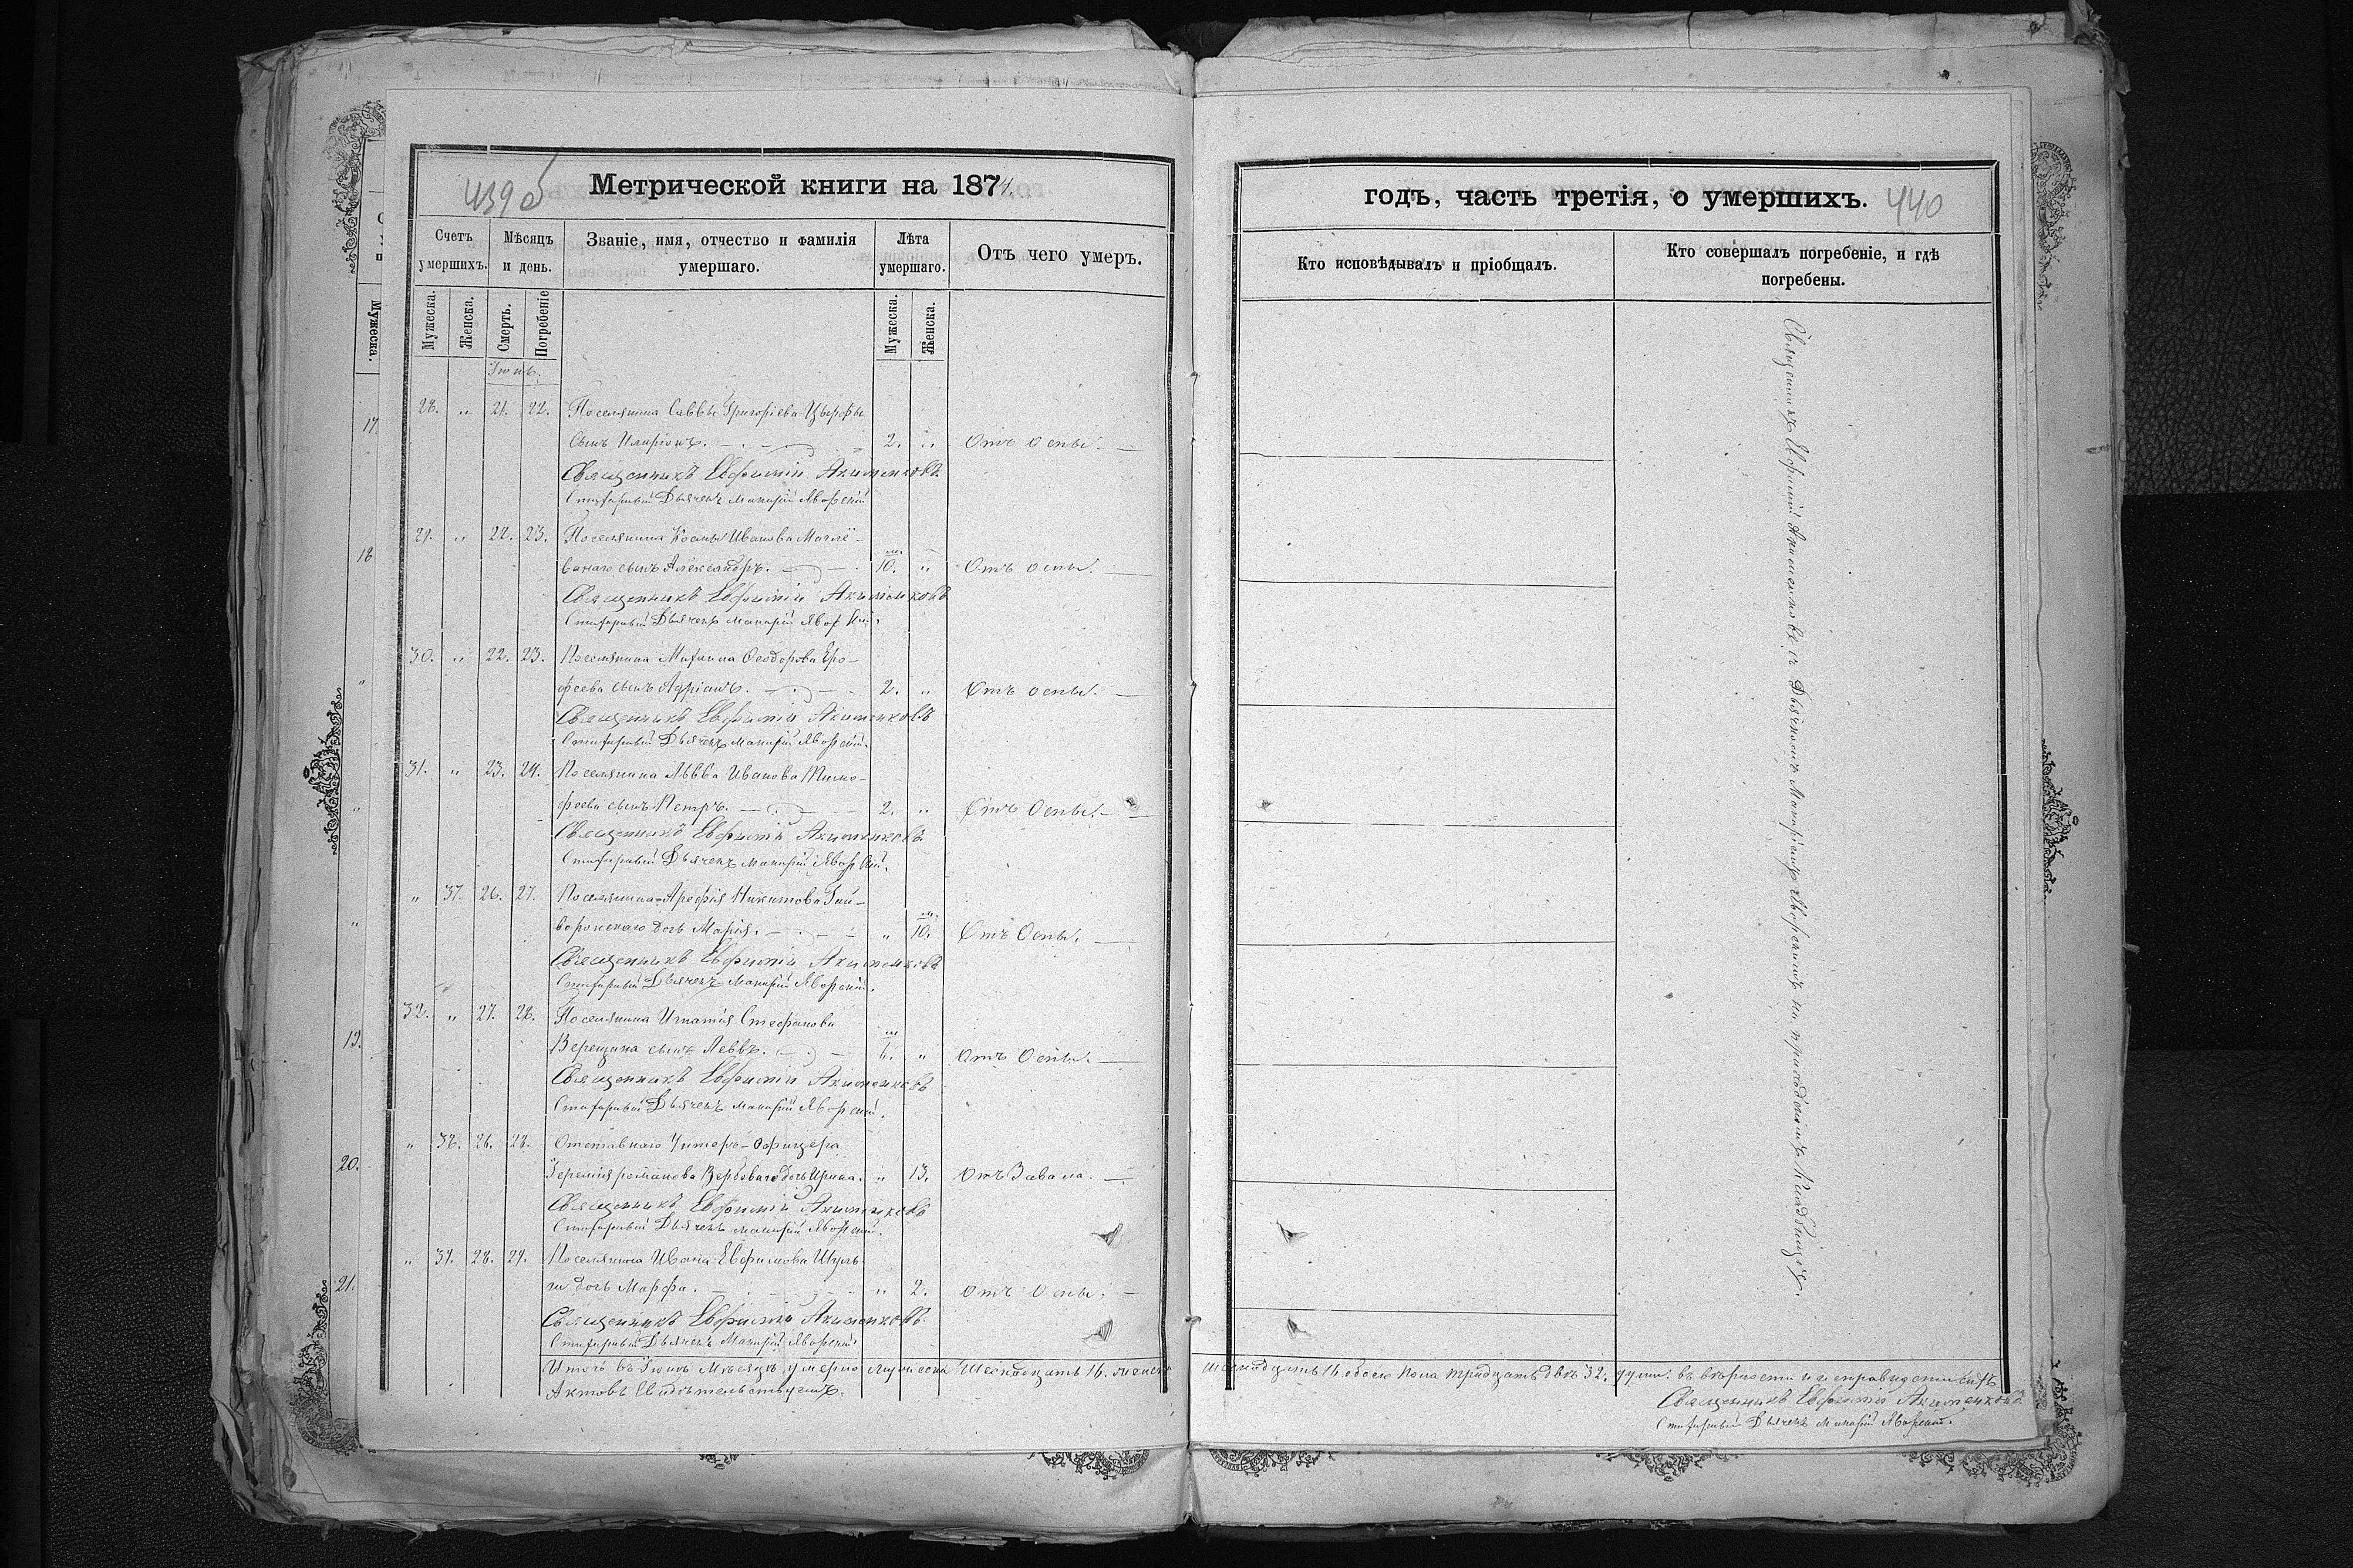 439 об
Метрической книги на 1874.
Счетъ умершихъ.
Мѣсяцъ и день.
Званіе, имя, отчество и фамилія умершаго.
Лѣта умершаго.
Отъ чего умеръ.
Мужеска.
Женска.
Смерть.
Погребеніе
Мужеска.
Женска.
Іюнь.
28. „ 21. 22. Поселянина Саввы Григоріева Цырфы
сынъ Иларіонъ. 2. „ Отъ оспы.
Священникъ Евфимій Акименковъ
Стихарный Дьячекъ Макарій Яворскій
29. „ 22. 23. Поселянина Космы Иванова
сынъ Александръ. 10. „ Отъ оспы.
Священникъ Евфимій Акименковъ
Стихарный Дьячекъ Макарій Яворскій.
30. „ 22. 23. Поселянина Михаила Ѳеодорова Еро-
феева сынъ Адріанъ. 2. „ Отъ оспы.
Священникъ Евфимій Акименковъ
Стихарный Дьячекъ Макарій Яворскій.
31. „ 23. 24. Поселянина Львва Иванова Тимо-
феева сынъ Петръ. 2. „ Отъ Оспы.
Священникъ Евфимій Акименковъ
Стихарный Дьячекъ Макарій Яворскій.
„ 37. 26. 27. Поселянина Арефія Никитова Гай-
воронскаго дочь Марія. „ 10. Отъ Оспы.
Священникъ Евфимій Акименковъ
Стихарный Дьячекъ Макарій Яворскій.
32. „ 27. 28. Поселянина Игнатія Стефанова
Верещака сынъ Леввъ. 6. „ Отъ Оспы.
Священникъ Евфимій Акименковъ
Стихарный Дьячекъ Макарій Яворскій.
„ 38. 26. 28. Отставнаго Унтеръ-Офицера
Іереміи романова Вербоваго дочь Ирина. „ 13. Отъ Завала.
Священникъ Евфимій Акименковъ
Стихарный Дьячекъ Макарій Яворскій.
„ 39. 28. 29. Поселянина Ивана Евфимова Шуль-
ги дочь Марфа. „ 2. Отъ Оспы.
Священникъ Евфимій Акименковъ.
Стихарный Дьячекъ Макарій Яворскій.
Итого въ Іюнѣ Мѣсяцѣ умерло мужеска Шестнадцать 16. женска
Актовъ Свидѣтельствуемъ.
Мужеска.
17.
18
„
„
„
19.
20.
21.
годъ, часть третія, о умершихъ. 440
Кто исповѣдывалъ и пріобщалъ.
Кто совершалъ погребеніе, и гдѣ погребены.
Священникъ Евфимій Акименковъ съ Дьячкомъ Макаріемъ Яворскимъ на приходскомъ Кладбищѣ.
шестнадцать 16. обоего пола тридцать двѣ 32. души. въ вѣрности и исправности сихъ
Священникъ Евфимій Акименковъ.
Стихарный Дьячекъ Макарій Яворскій.